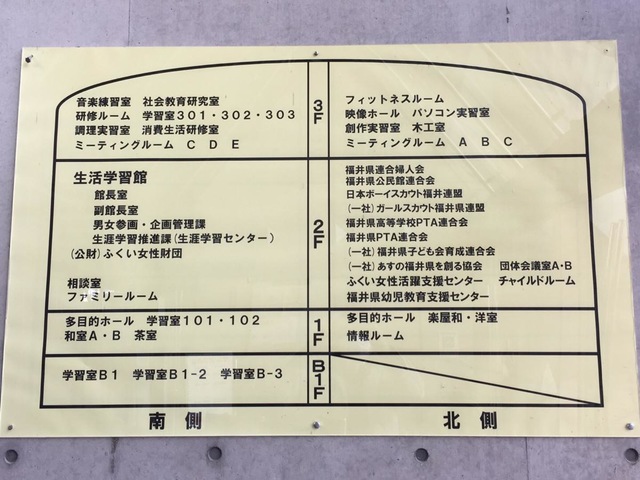 音楽練習室　社会教育研究室
研修ルーム　学習室301・302・303
調理実習室　消費生活研修室
ミーティングルーム　C　D　E
3F
フィットネスルーム
映像ホール　パソコン実習室
創作実習室　木工室
ミーティングルーム　A　B　C
生活学習館
館長室
副館長室
男女参画・企画管理課
生涯学習推進課(生涯学習センター)
(公財)ふくい女性財団
相談室
ファミリールーム
2F
福井県連合婦人会
福井県公民館連合会
日本ボーイスカウト福井連盟
(一社)ガールスカウト福井県連盟
福井県高等学校PTA連合会
福井県PTA連合会
(一社)福井県子ども会育成連合会
(一社)あすの福井県を創る協会　団体会議室A・B
ふくい女性活躍支援センター　チャイルドルーム
福井県幼児教育支援センター
多目的ホール　学習室101・102
和室A・B　茶室
1F
多目的ホール　楽屋和・洋室
情報ルーム
学習室B1　学習室B1-2　学習室B-3
B1F
南側
北側